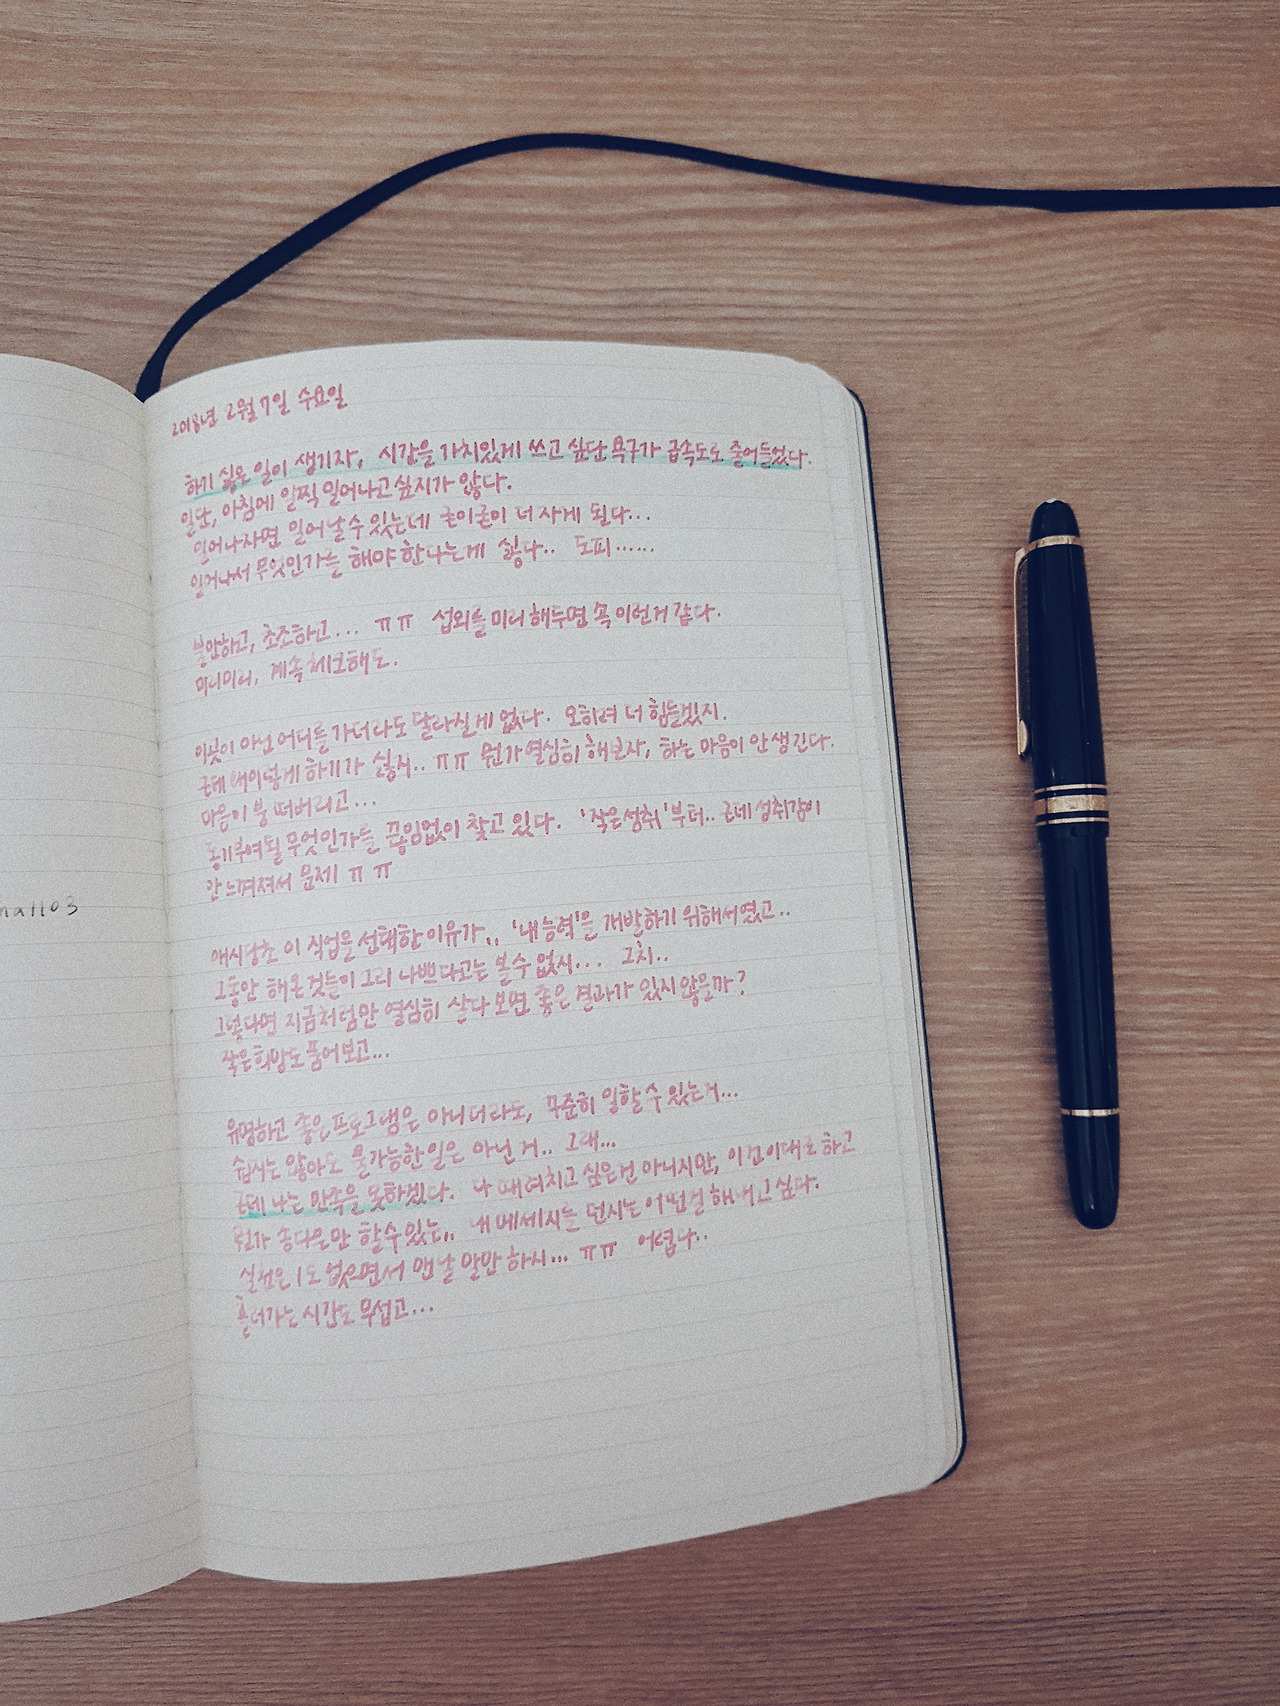 2018년 2월 7일 수요일
하기 싫은 일이 생기자, 시간을 가치있게 쓰고 싶단 욕구가 급속도로 줄어들었다.
일단, 아침에 일찍 일어나고 싶지가 않다.
일어나자면 일어날 수 있는데 눈이 더 사게 된다...
일어나서 무엇인가를 해야 한다는게 싫다.. 도피......
불안하고, 초조하고... ㅠㅠ 섭외를 미리 해두면 꼭 이런거 같다.
미리미리, 계속 체크해도.
이곳이 아닌 어디를 가더라도 달라질 게 없다. 오히려 더 힘들겠지.
근데 왜이렇게 하기가 싫지.. ㅠㅠ 뭔가 열심히 해보자, 하는 마음이 안 생긴다.
마음이 붕 떠버리고...
동기부여될 무엇인가를 끊임없이 찾고 있다. '작은성취'부터.. 근데 성취감이
안 느껴져서 문제 ㅠㅠ
애시당초 이 직업을 선택한 이유가.. '내 능력'을 개발하기 위해서였고..
그동안 해온 것들이 그리 나쁘다고는 볼 수 없지... 그치..
그렇다면 지금처럼만 열심히 살다 보면 좋은 결과가 있지 않을까?
작은 희망도 품어보고...
유명하고 좋은 프로그램은 아니더라도, 꾸준히 일할 수 있는거...
쉽지는 않아도 불가능한 일은 아닌 거.. 그래...
근데 나는 만족을 못하겠다. 다 때려치고 싶은건 아니지만, 이건 이대로 하고
뭔가 좀다른 할 수 있는.. 내 메세지를 던지는 어떤걸 해내고 싶다.
실천은 1도 없으면서 맨날 말만 하지... ㅠㅠ 어렵다..
흘러가는 시간도 무섭고...